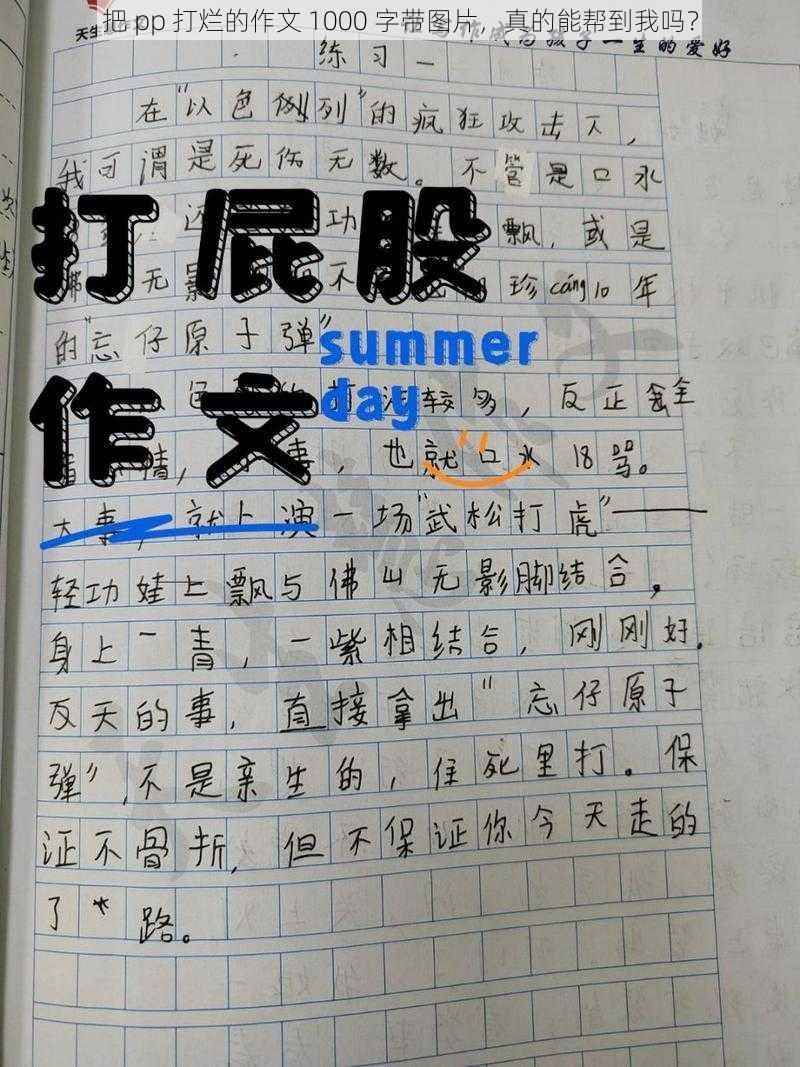 把 pp 打烂的作文 1000 字带图片，真的能帮到我吗？
天生
作成为孩子一生的爱好
练习一
在“以色列”的疯狂攻击下，
我可谓是死伤无数。不管是口水
还 功 飘，或是
无影 不 珍cáng10年
的“忘仔原子弹”
打屁股
作文
summer
day
打法较多，反正
事，也就口水18骂。
大事，就上演一场“武松打虎”——
轻功娃上飘与佛山无影脚结合，
身上一青，一紫相结合，刚刚好。
反天的事，直接拿出“忘仔原子
弹”，不是亲生的，往死里打。保
证不骨折，但不保证你今天走的
了*路。